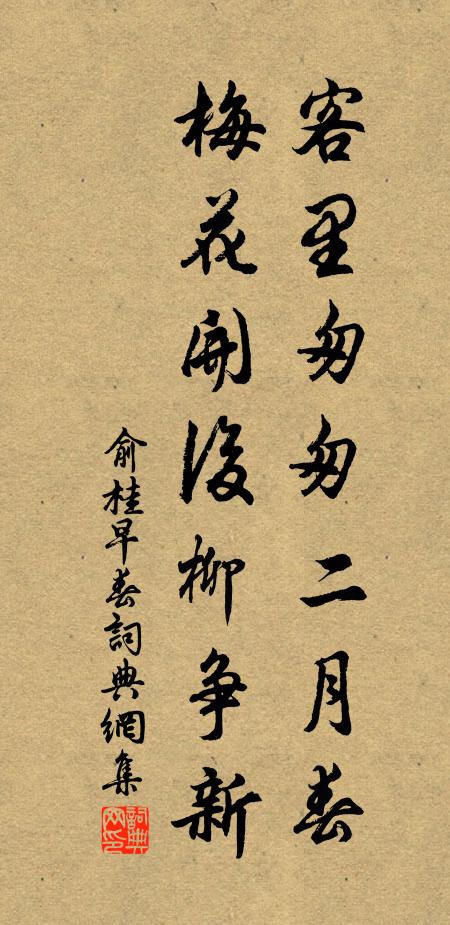 客里匆匆二月春
梅花開後柳争新
俞桂早春詞典網集
詞典網印